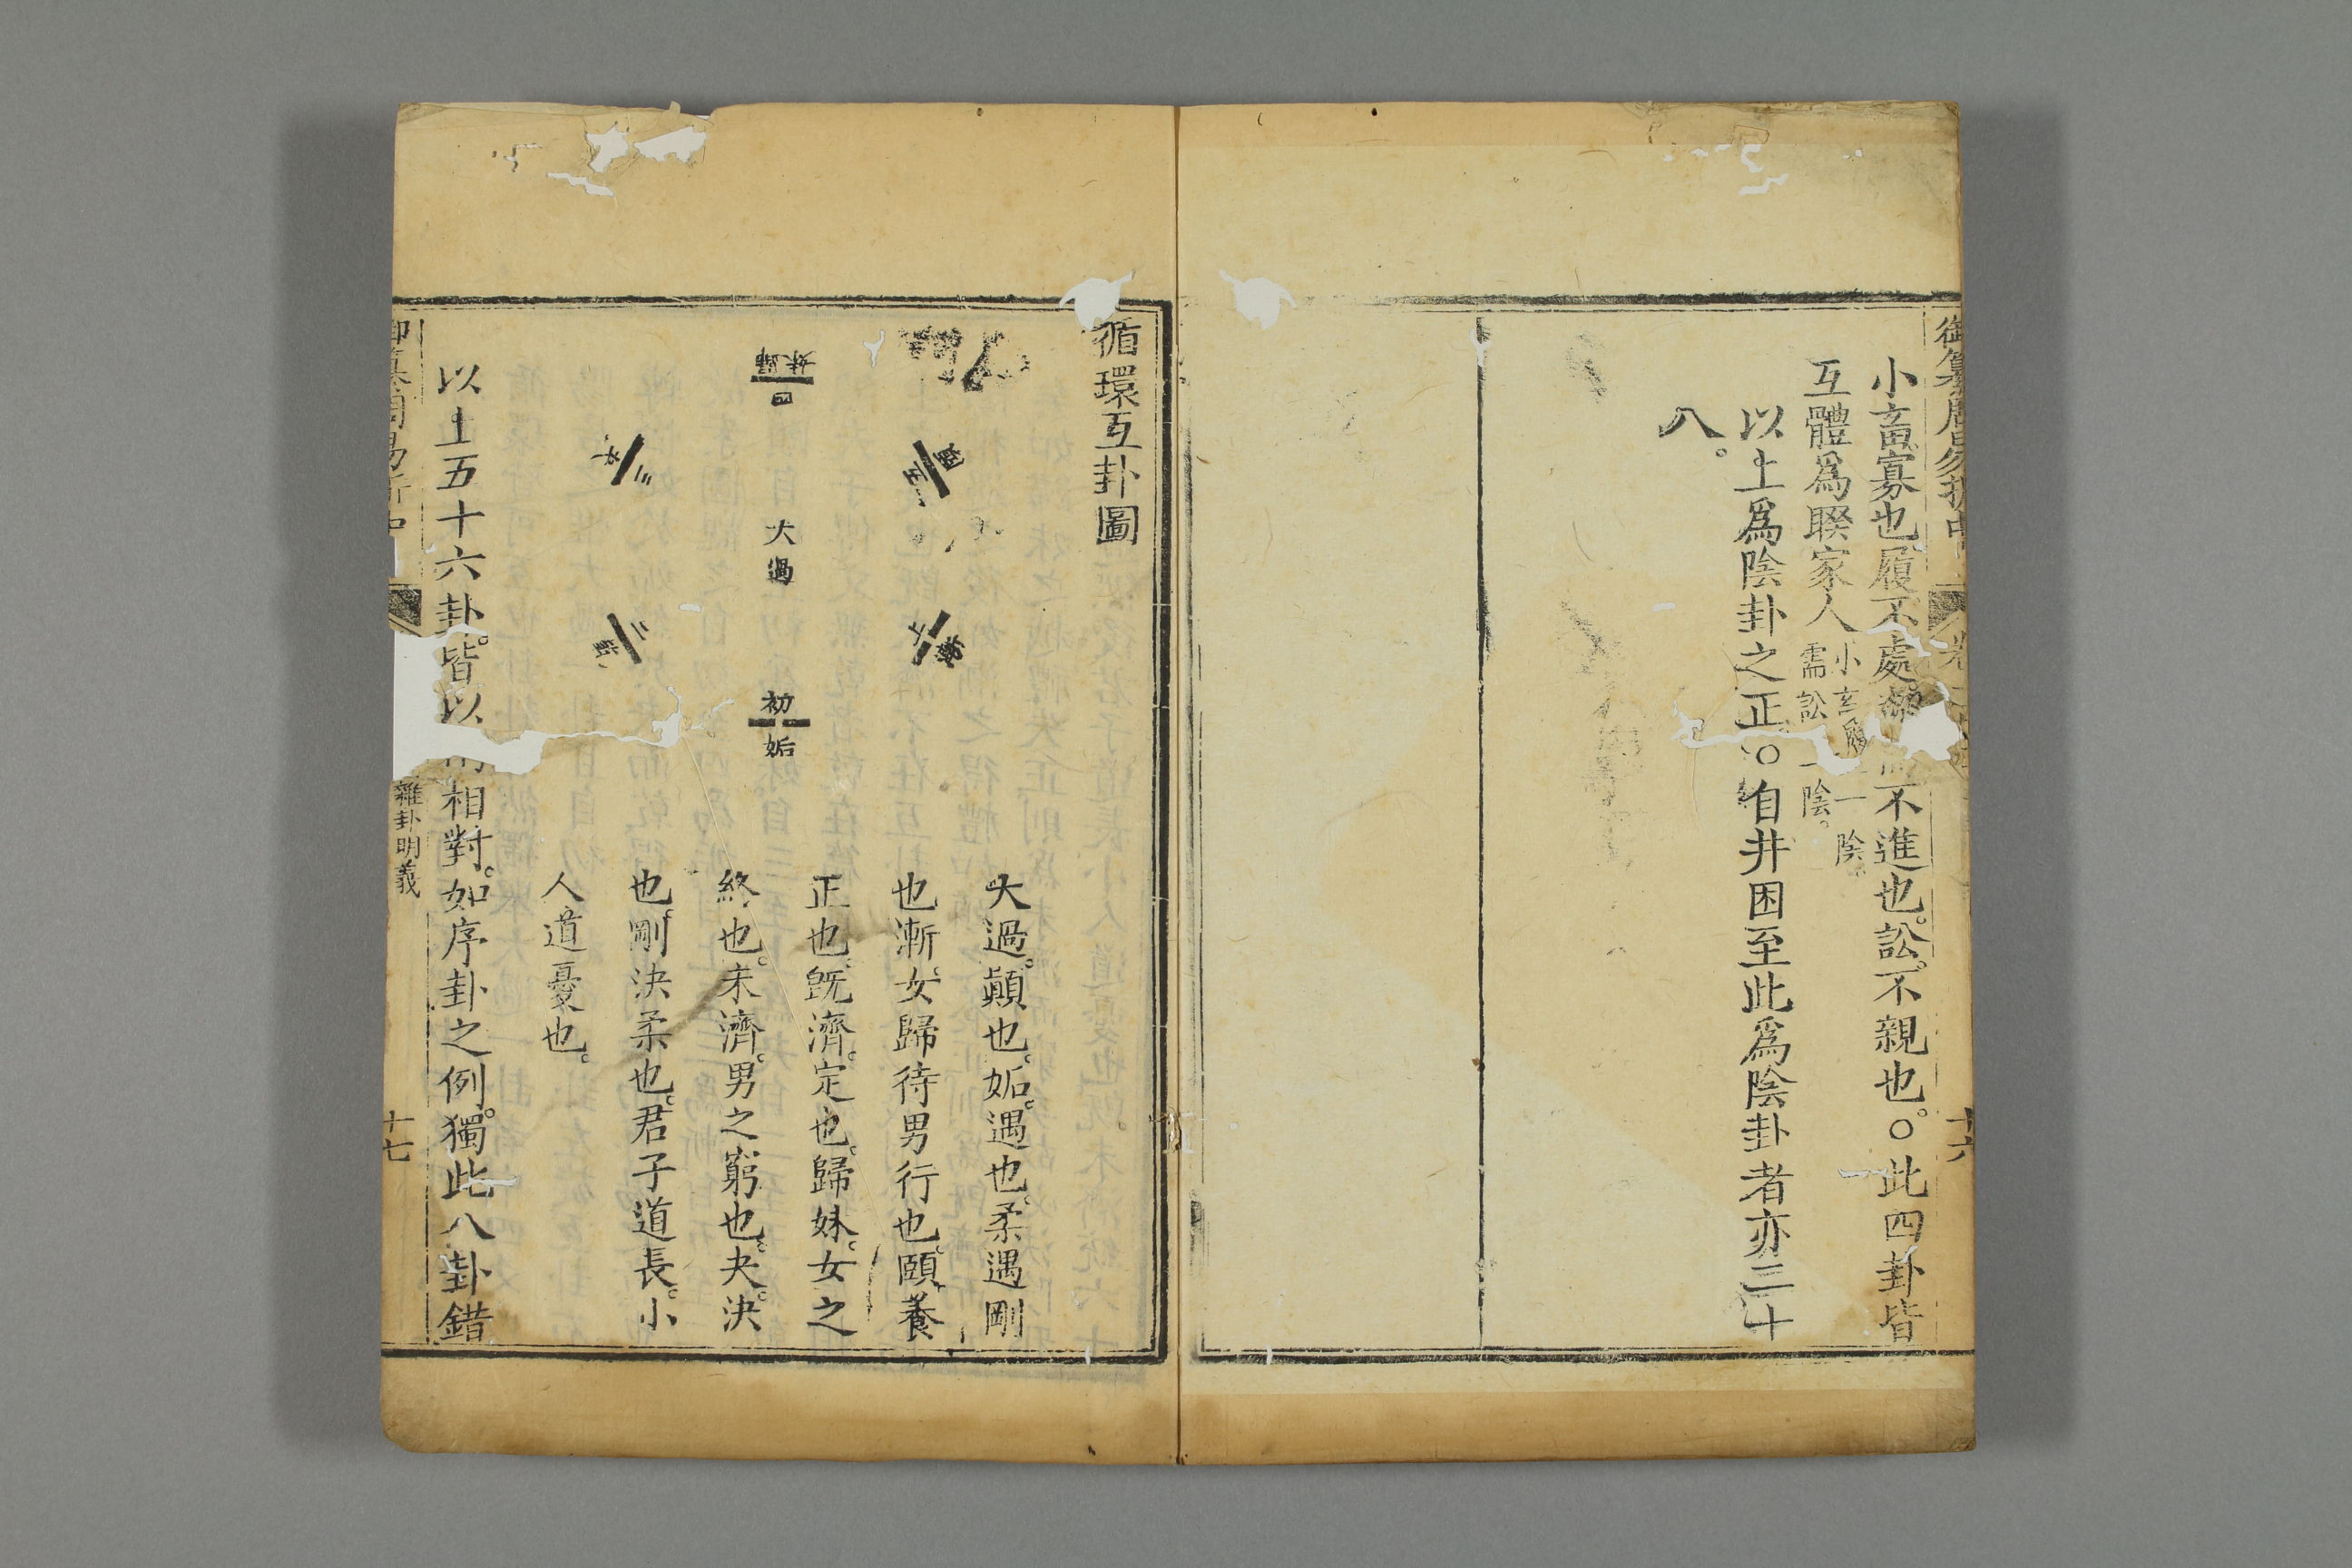 小畜寡也履不處也需不進也訟不親也○此四卦皆
互體爲睽家人
小畜履一陰
需訟二陰
以上爲陰卦之正○自井困至此爲陰卦者亦三十
八
十六
循環互卦圖
歸妹
四
大過
初
姤
大過顚也姤遇也柔遇剛
也漸女歸待男行也頤養
正也旣濟定也歸妹女之
終也未濟男之窮也夬決
也剛決柔也君子道長小
人道憂也
以上五十六卦皆以兩相對如序卦之例獨此八卦錯
雜卦明義
十七